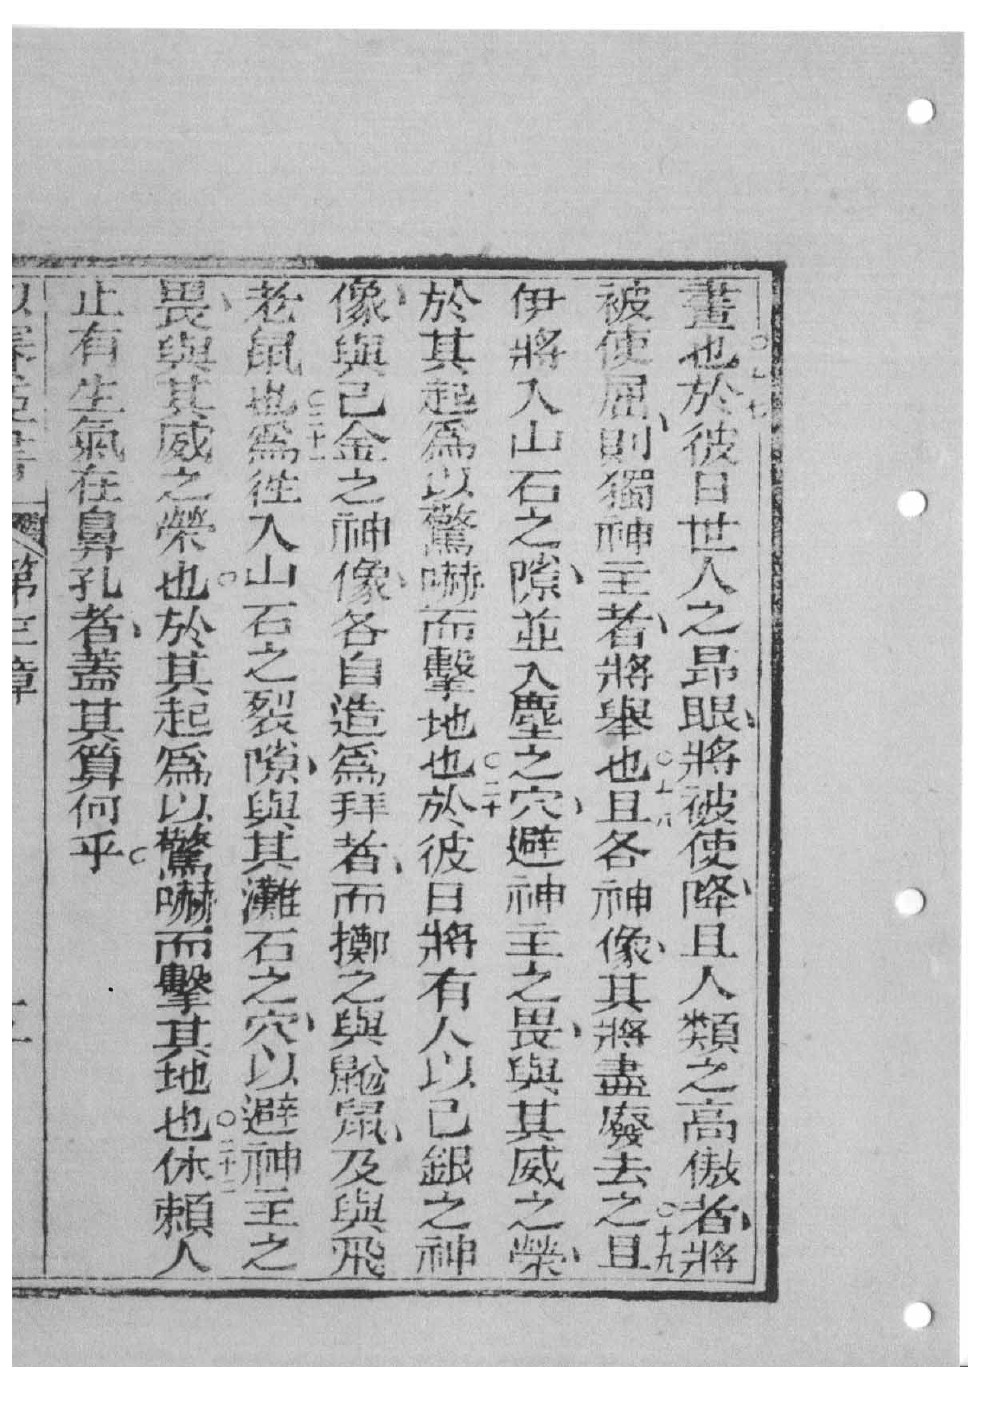 畫也○十七於彼日世人之昂眼、將被使降、且人類之高傲者、將
被使屈、則獨神主者、將舉也○十八且各神像、其將盡廢去之○十九且
伊將入山石之隙、並入塵之穴、避神主之畏、與其威之榮、
於其起爲以驚嚇而擊地也○二十於彼日將有人以己銀之神
像、與己金之神像、各自造爲拜者、而擲之與鼢鼠、及與飛
老鼠也○二十一爲徃入山石之裂隙、與其灘石之穴、以避神主之
畏、與其威之榮也○於其起爲以驚嚇而擊其地也○二十二休賴人
止有生氣在鼻孔者、蓋其算何乎○
第三章